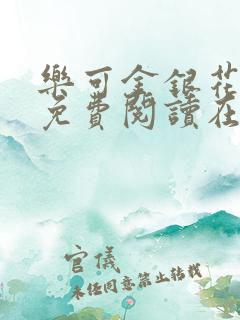 樂可金銀花
免費閱讀在
官儀
未經同意禁止轉載